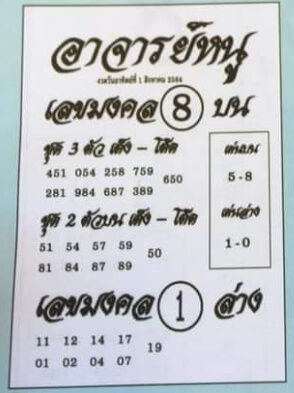 อาจารย์หนู
งวดวันอาทิตย์ที่ 1 สิงหาคม 2564
เลขมงคล 8 บน
ชุด 3 ตัว เต็ง - โต๊ด
451 054 258 759
650
281 984 687 389
เด่นบน
5-8
ชุด 2 ตัวบน เต็ง - โต๊ด
51 54 57 59
50
81 84 87 89
เด่นล่าง
1-0
เลขมงคล 1 ล่าง
11 12 14 17
19
01 02 04 07